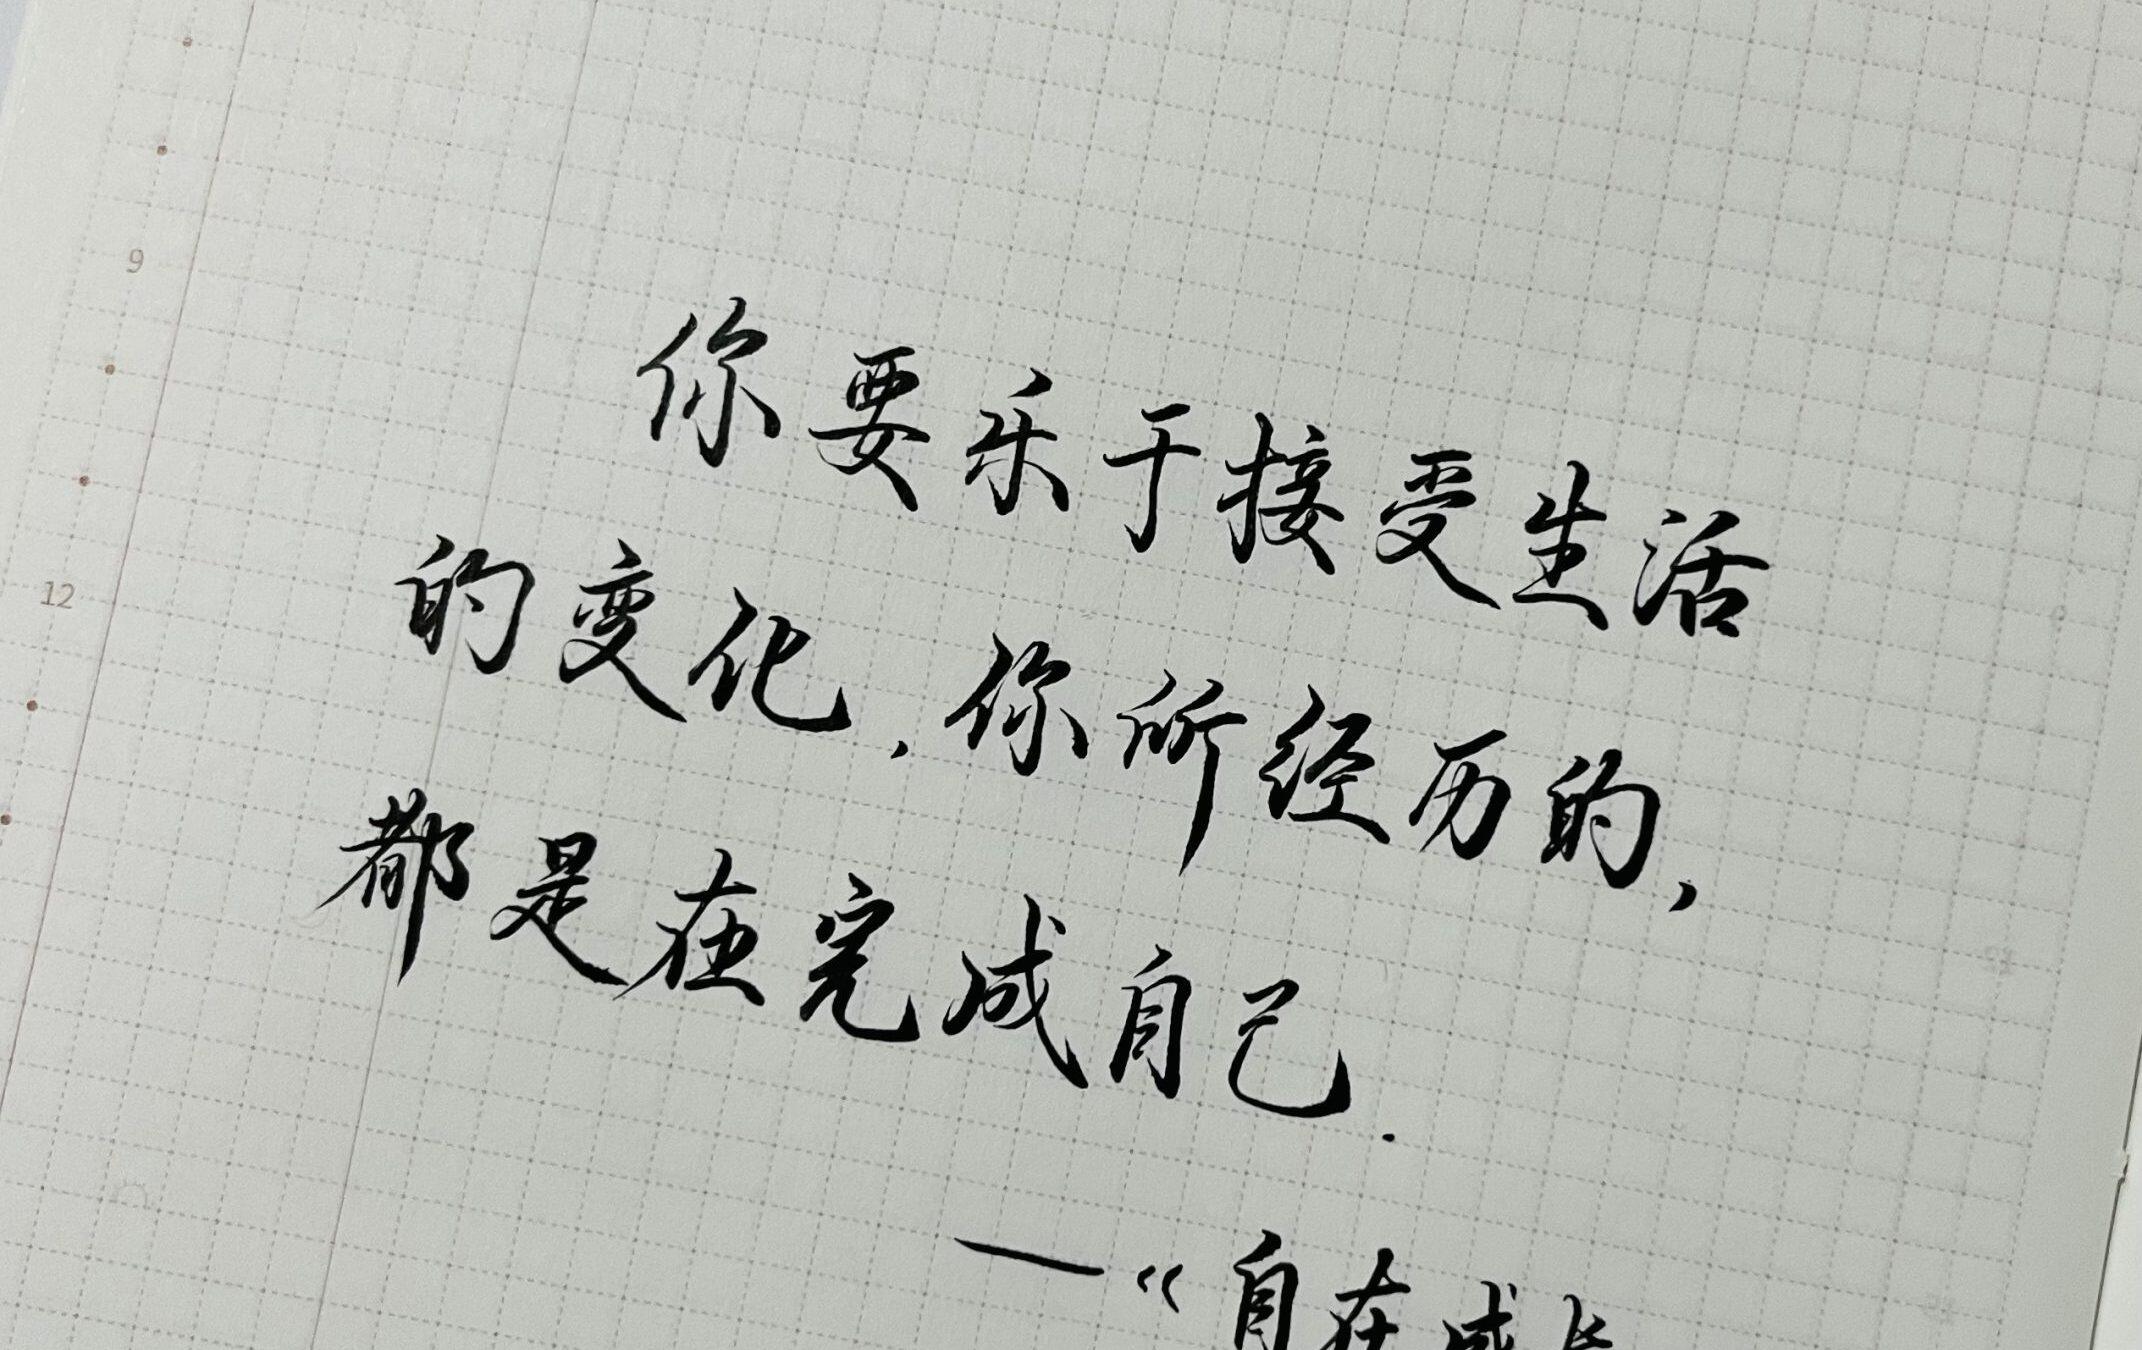 9
12
你要乐于接受生活
的变化,你所经历的,
都是在完成自己.
—《自在成长